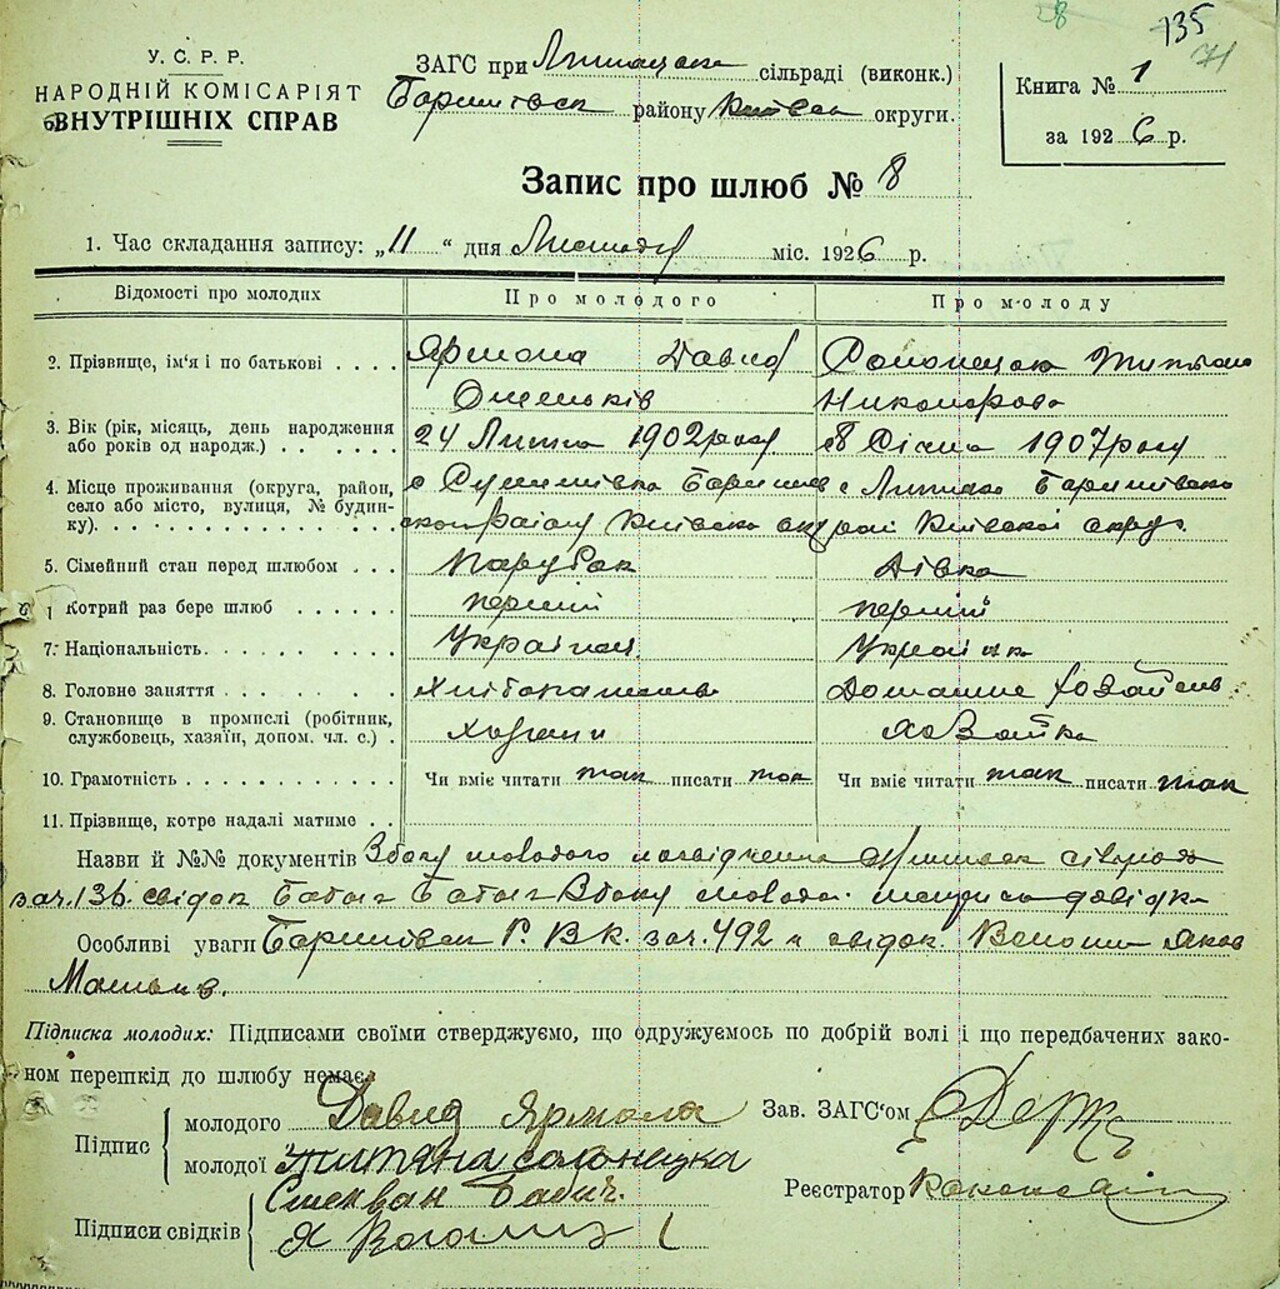 28
135
71
У. С. Р. Р.
НАРОДНІЙ КОМІСАРІЯТ
ВНУТРІШНІХ СПРАВ
ЗАГС при сільраді (виконк.)
Баришівськ району Київськ округи.
Книга № 1
за 1926 р.
Запис про шлюб № 8
1. Час складання запису: „11“ дня Листопаду міс. 1926 р.
Відомості про молодих Про молодого Про молоду
2. Прізвище, ім'я і по батькові . . . . Ярмола Давид Солонецка Титяна
Никонорова
3. Вік (рік, місяць, день народження 24 Липня 1902 року 8 Січня 1907 року
або років од народж.) . . . . . .
4. Місце проживання (округа, район, с Баришівсько
село або місто, вулиця, № будин- району Київсько Київської округ.
ку). . . . . . . . . . . . . . . .
5. Сімейний стан перед шлюбом . . . Парубок Дівка
Котрий раз бере шлюб . . . . . . перший перший
7. Національність. . . . . . . . . . Українец Українка
8. Головне заняття . . . . . . . . Хліборобство Домашне хозайство
9. Становище в промислі (робітник, хазяин хозайка
службовець, хазяїн, допом. чл. с.) .
10. Грамотність . . . . . . . . . . . Чи вміє читати так писати так Чи вміє читати так писати так
11. Прізвище, котре надалі матиме . .
Назви й №№ документів З боку молодого посвідчення сільради
за ч. 136. свідок Бабич З боку молодої довідка
Особливі уваги Баришівськ Р. В К. за ч. 492 и свідок. Волошин Яков
Підписка молодих: Підписами своїми стверджуємо, що одружуємось по добрій волі і що передбачених зако-
ном перешкід до шлюбу немає.
Підпис
молодого Давид Ярмола
Зав. ЗАГС'ом
молодої Титяна солонецка
Реєстратор
Підписи свідків
Степан Бабич.
Я Волошин